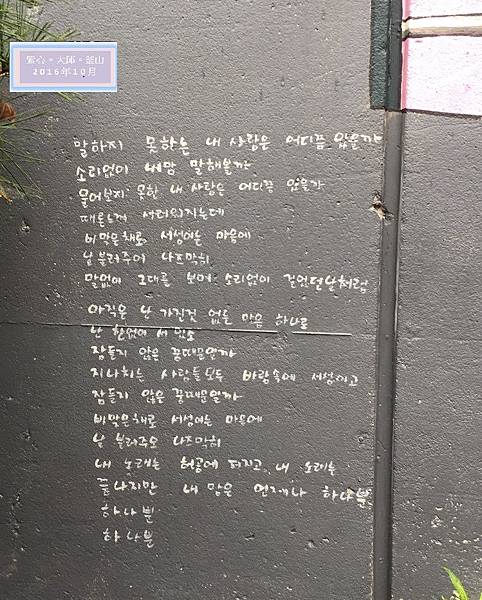 紫心。大師。釜山
2016年10月
말하지 못하는 내 사랑은 어디쯤 있을까
소리없이 내맘 말해볼까
물어보지 못한 내 사랑은 어디쯤 있을까
때론느껴 서러워지는데
비맞은채로 서성이는 마음에
날 불러주오 나즈막히
말없이 그대를 보며 소리없이 걸었던날처럼
아직은 난 가진것 없는 마음 하나로
난 한없이 서있소
잠들지 않은 꿈때문일까
지나치는 사람들모두 바람속에 서성이고
잠들지 않은 꿈때문일까
비맞은채로 서성이는 마음에
날 불러주오 나즈막히
내 노래는 허공에 퍼지고 내 노래는
끝나지만 내 맘은 언제나 하나뿐
하나뿐
하나뿐